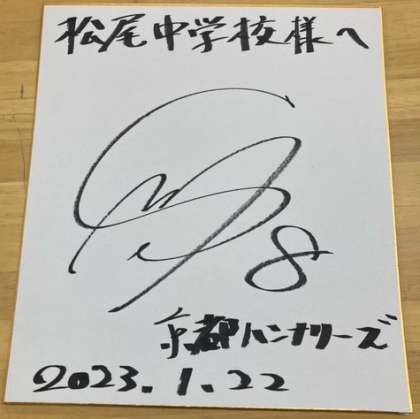 松尾中学校様へ
8
京都ハンナリーズ
2023.1.22